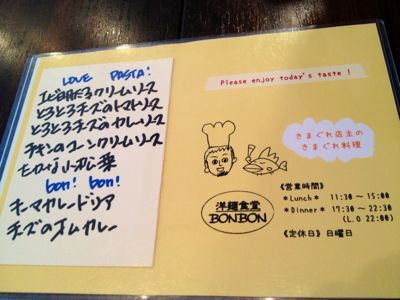 LOVE PASTA!
エビ明太子クリームソース
とろとろチーズのトマトソース
とろとろチーズのカレーソース
チキンのコーンクリームソース
小松菜
bon! bon!
キーマカレードリア
チーズのオムカレー
Please enjoy today's taste !
きまぐれ店主の
きまぐれ料理
洋麺食堂
BONBON
《営業時間》
*Lunch* 11:30 ～ 15:00
*Dinner* 17:30 ～ 22:30
(L.O 22:00)
《定休日》日曜日